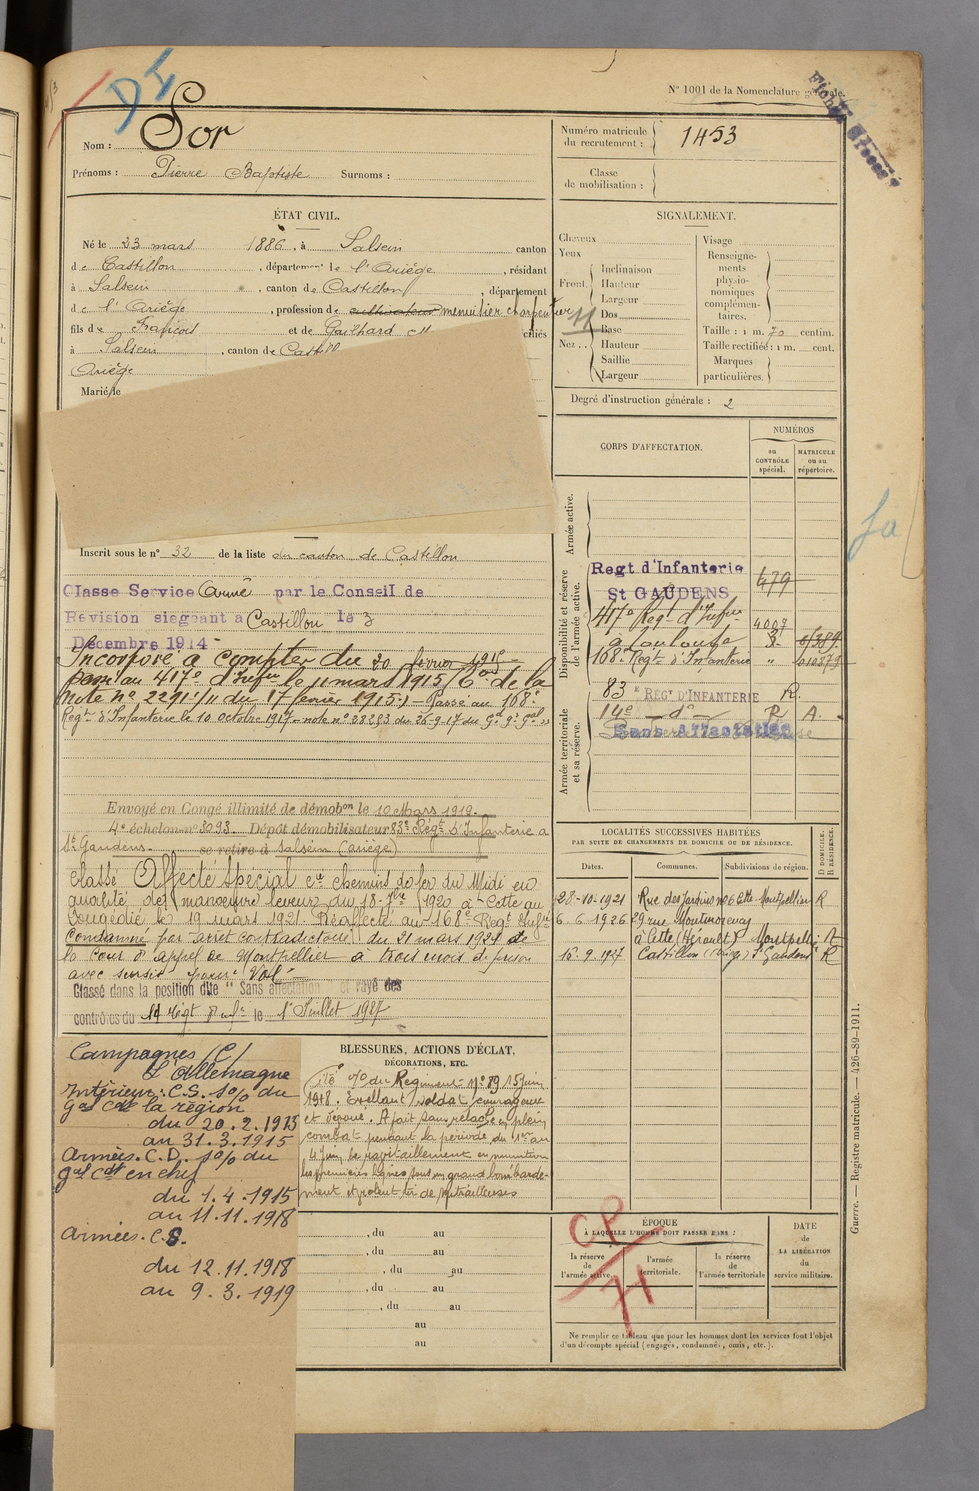 DI
Fiches
N° 1001 de la Nomenclature générale.
Nom : Sor
Prénoms : Pierre Baptiste Surnoms :
Numéro matricule du recrutement : 1453
Classe de mobilisation :
ÉTAT CIVIL.
Né le 23 mars 1886, à Salsein canton
de Castillon, département de l'Ariége, résidant
à Salsein, canton de Castillon, département
de l'Ariège, profession de cultivateur menuisier charpentier
fils de François et de Gailhard
à Salsein, canton de
Ariège
Marié le
SIGNALEMENT.
Cheveux
Yeux
Front
Inclinaison
Hauteur
Largeur
Nez
Dos
Base
Hauteur
Saillie
Largeur
Visage
Renseignements physionomiques complémentaires.
Taille : 1 m. 70 centim.
Taille rectifiée : 1 m. cent.
Marques particulières.
Degré d'instruction générale : 2
Inscrit sous le n° 32 de la liste du canton de Castillon
Classe Service Armé par le Conseil de
Révision siegeant a Castillon le 3
Décembre 1914
Incorporé à compter du 20 février 1915
Passé au 417e d'Infie le 11 mars 1915 de la
note n° 2291/11 du 17 février 1915.) – Passé au 168e
Regt d'Infanterie le 10 octobre 1917 – note n° 28293 du 26-9-17 du
Envoyé en Congé illimité de démobon le 10 Mars 1919.
4e échelon n° 3093. Dépôt démobilisateur 83e Régt d'Infanterie a
St Gaudens. se retire à Salsein (ariège)
Classé Affecté Spécial aux chemins de fer du Midi en
qualité de manoeuvre leveur du 18-7bre 1920 à Cette au
Congédié le 19 mars 1921. Réaffecté au 168e Regt Infie
Condamné par arret contradictoire du 21 mars 1924 de
la Cour d'appel de Montpellier à trois mois de prison
avec sursis pour Vol
Classé dans la position dite " Sans affectation " et rayé des
contrôles du 14 Régt le 1er Juillet 1927
CORPS D'AFFECTATION.
NUMÉROS
au CONTRÔLE spécial.
MATRICULE ou au répertoire.
Armée active.
Disponibilité et réserve de l'armée active.
Armée territoriale et sa réserve.
Regt d'Infanterie
St GAUDENS
479
417e Regt d'Infie
à Toulouse
4007
3
168e Regt d'Infanterie "
83e RÉGt D'INFANTERIE R.
14e – d° – R A.
Sans Affectation
LOCALITÉS SUCCESSIVES HABITÉES
PAR SUITE DE CHANGEMENTS DE DOMICILE OU DE RÉSIDENCE.
Dates. Communes. Subdivisions de région. D DOMICILE. R RÉSIDENCE.
28-10-1921 Rue des Jardins n° 6 Cette Montpellier R
6-6-1926 29 rue Montmorency
à Cette (Hérault) Montpellier R
16-9-1927 Castillon (Ariège) St Gaudens R
Campagnes (C/
L'Allemagne
Intérieur : C.S. s/o% du
gal Ct la région
du 20.2.1913
au 31.3.1915
Armées. C.D. s/o% du
gal Ct en chef
du 1.4.1915
au 11.11.1918
Armées. C.S.
du 12.11.1918
au 9.3.1919
BLESSURES, ACTIONS D'ÉCLAT,
DÉCORATIONS, ETC.
Cité o/ du Régiment n° 89 15 juin
1918. Excellent soldat courageux
et dévoué. A fait sans relache en plein
combat pendant la période du 1er au
4 juin le ravitaillement en munition
les premières lignes sous un grand bombarde-
ment et violent tir de mitrailleuses
, du au
, du au
, du au
, du au
, du au
au
au
CP
71
ÉPOQUE
À LAQUELLE L'HOMME DOIT PASSER DANS :
la réserve de l'armée active.
l'armée territoriale.
la réserve de l'armée territoriale
DATE de LA LIBÉRATION du service militaire.
Ne remplir ce tableau que pour les hommes dont les services font l'objet
d'un décompte spécial (engagés, condamnés, omis, etc.).
Guerre. — Registre matricule. — 426-89-1911.